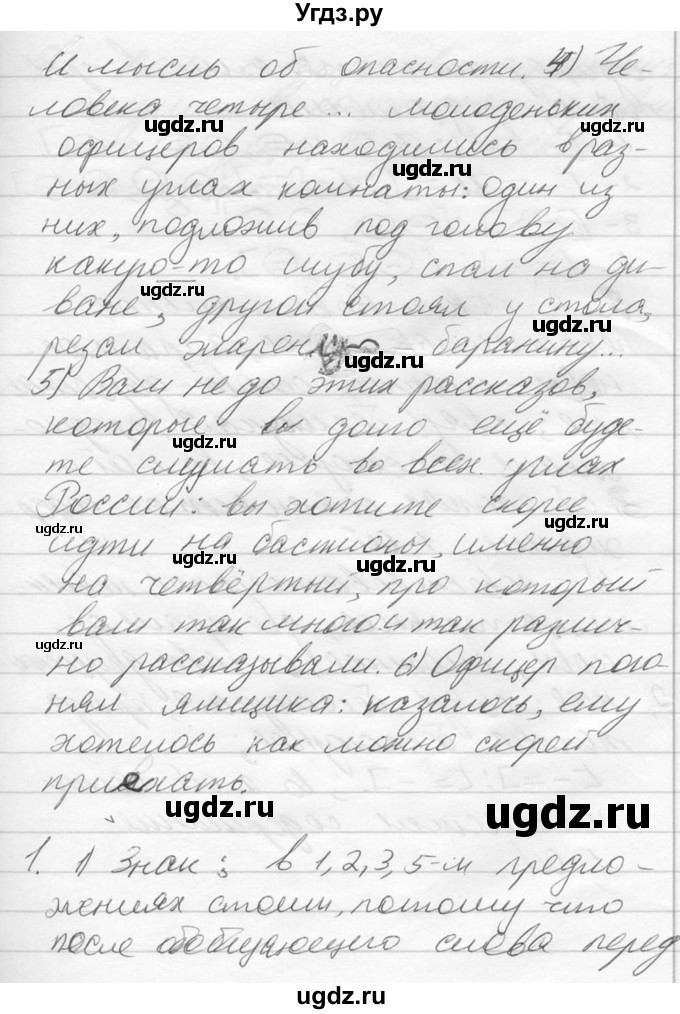 Угдз.ру
И мысль об опасности. 4) Че-
ловека четыре ... молоденьких
ugdz.ru ugdz.ru
офицеров находились в раз-
ugdz.ru
ных углах комнаты: один из
них, подложив под голову
какую-то шубу, спал на ди-
ugdz.ru
ване, другой стоял у стола,
ugdz.ru
резал жарен – баранину...
ugdz.ru
5) Вам не до этих рассказов,
которые вы долго ещё буде-
ugdz.ru
те слушать во всех углах
России: вы хотите скорее
ugdz.ru ugdz.ru
идти на бастионы, именно
ugdz.ru ugdz.ru
на четвёртый, про который
вам так много и так различ-
ugdz.ru
но рассказывали. 6) Офицер пого-
ugdz.ru
нял ямщика: казалочь, ему
хотелось как можно скорей
приехать.
ugdz.ru ugdz.ru
1. 1) Знак : в 1, 2, 3, 5-м предло-
ugdz.ru
жениях стоит, потому что
после обобщающего слова перед
ugdz.ru ugdz.ru
ugdz.ru